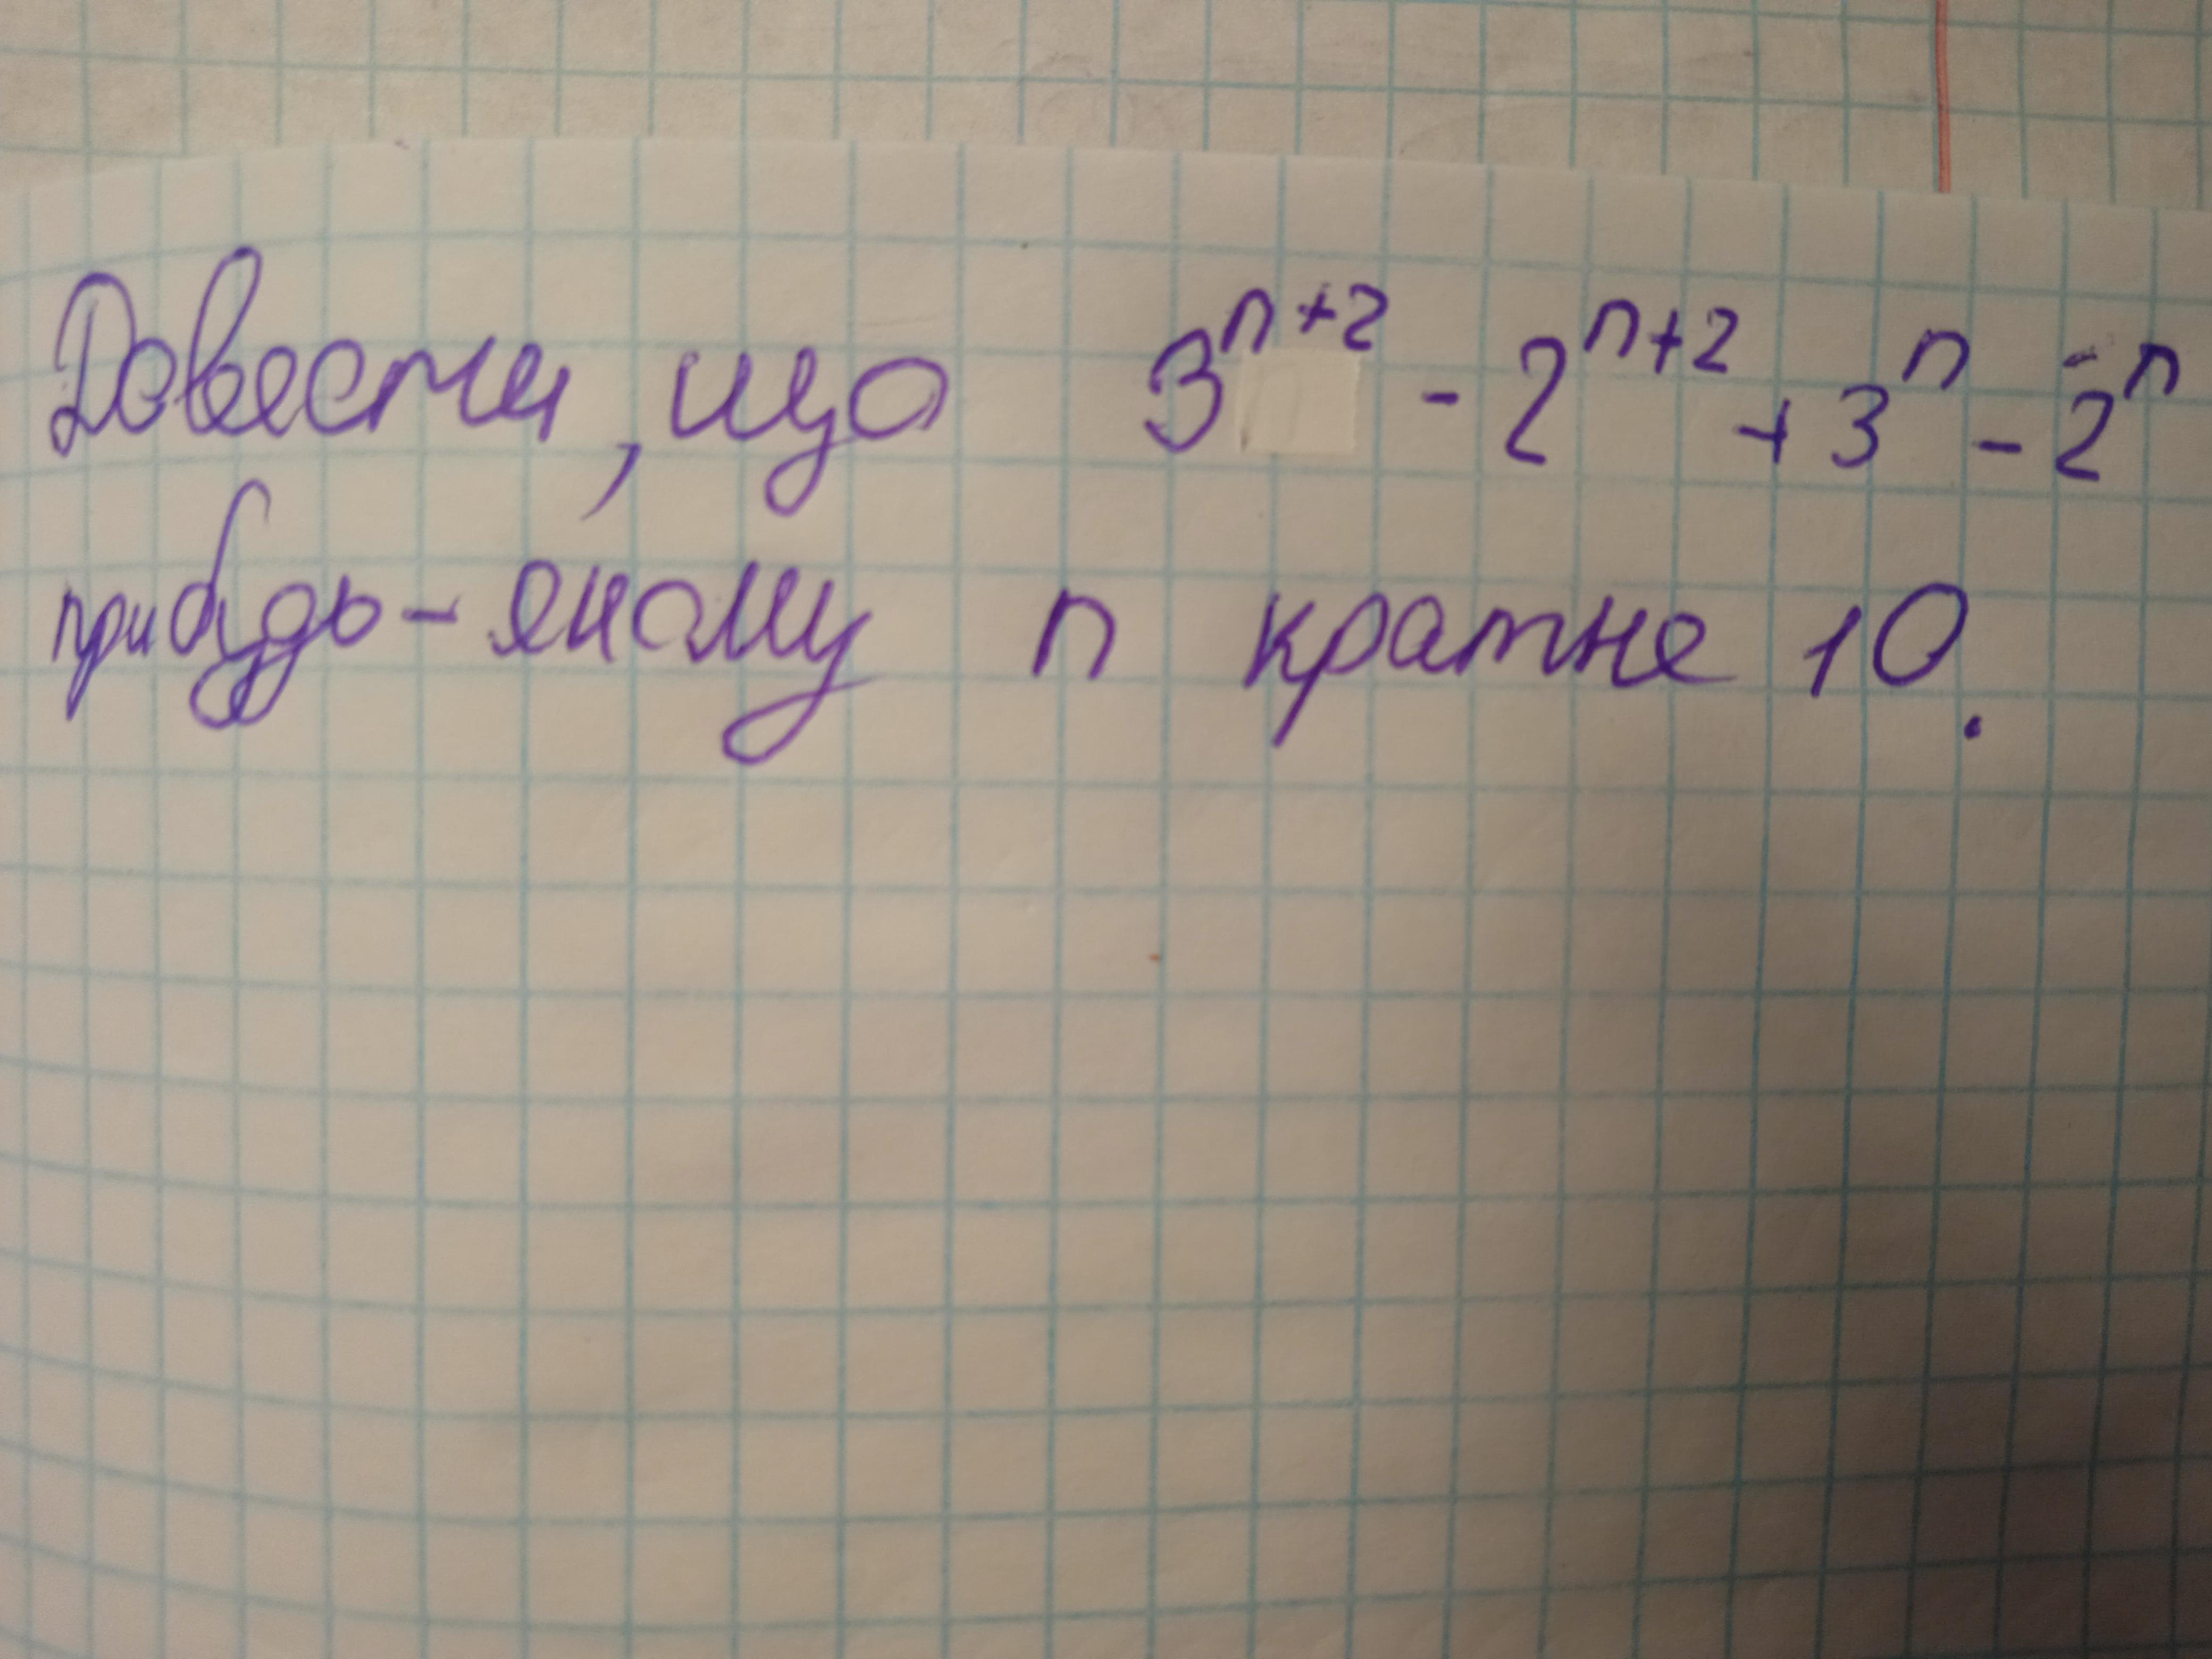 Довести, що 3^{n+2} - 2^{n+2} + 3^n - 2^n
при будь-якому n кратне 10.